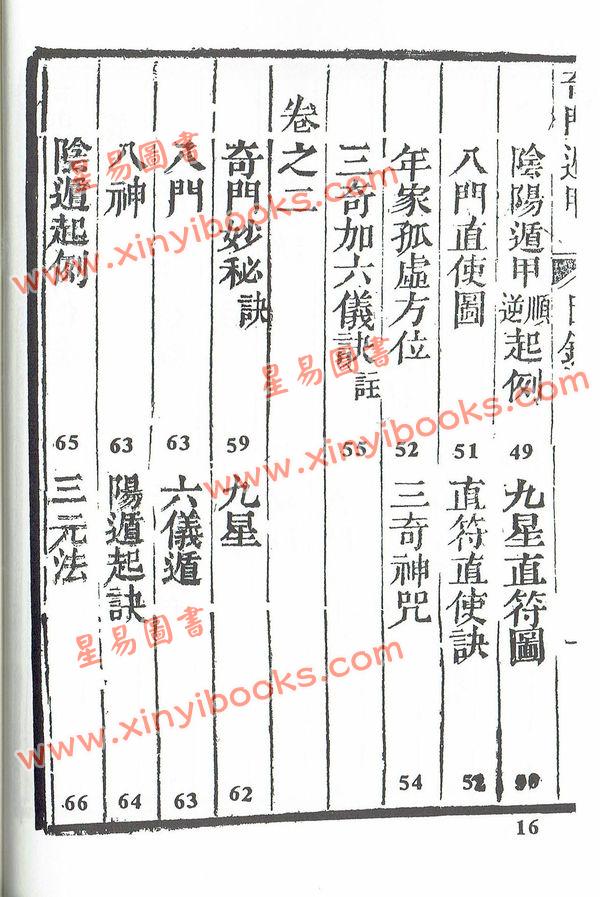 奇門遁甲 目錄 一
陰陽遁甲順逆起例 49 九星直符圖
八門直使圖 51 直符直使訣 52
年家孤虛方位 52 三奇神咒 54
三奇加六儀訣註 55
卷之三
奇門妙秘訣 59 九星 62
八門 63 六儀遁 63
八神 63 陽遁起訣 64
陰遁起例 65 三元法 66
16
星易圖書
www.xinyibooks.com
星易圖書
www.xinyibooks.com
星易圖書
www.xinyibooks.com